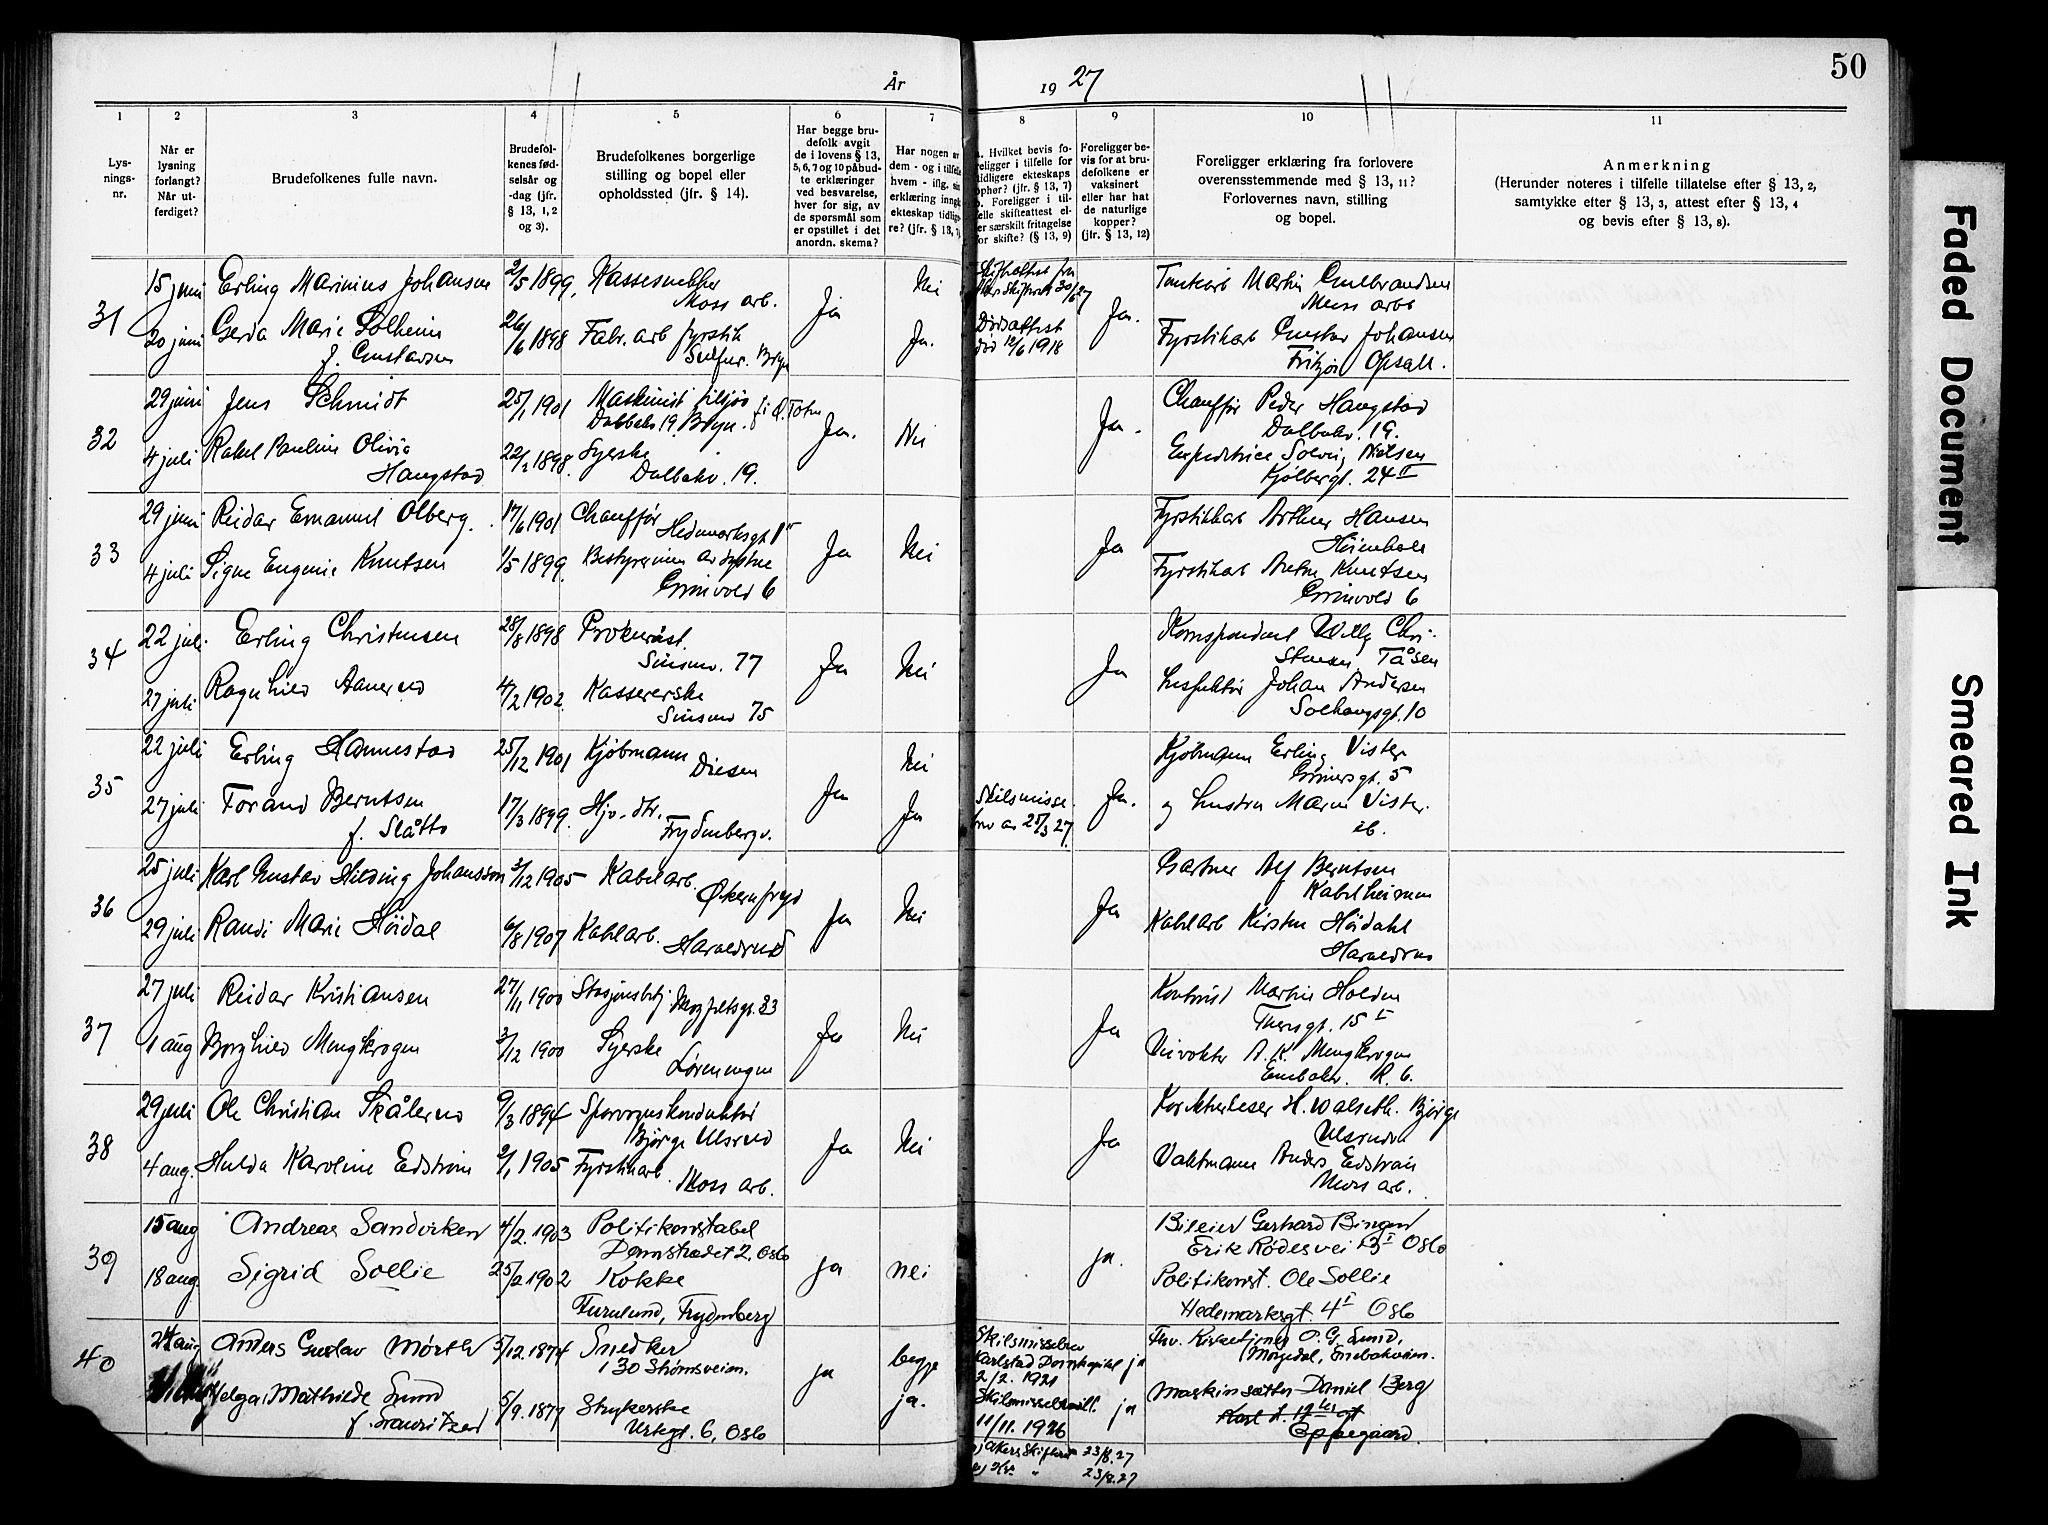 50
År 19 27
1 2 3 4 5 6 7 8 9 10 11
Lysnings-nr.
Når er lysning forlangt? Når utferdiget?
Brudefolkenes fulle navn.
Brudefolkenes fødselsår og -dag (jfr. § 13, 1, 2 og 3).
Brudefolkenes borgerlige stilling og bopel eller opholdssted (jfr. § 14).
Har begge brudefolk avgit de i lovens § 13, 5, 6, 7 og 10 påbudte erklæringer ved besvarelse, hver for sig, av de spørsmål som er opstillet i det anordn. skema?
Har nogen av dem - og i tilfelle hvem - iflg. sin erklæring inngått ekteskap tidligere? (jfr. § 13, 7)
a. Hvilket bevis foreligger i tilfelle for tidligere ekteskaps ophør? (jfr. § 13, 7) b. Foreligger i tilfelle skifteattest eller særskilt fritagelse for skifte? (§ 13, 9)
Foreligger bevis for at brudefolkene er vaksinert eller har hat de naturlige kopper? (jfr. § 13, 12)
Foreligger erklæring fra forlovere overensstemmende med § 13, 11? Forlovernes navn, stilling og bopel.
Anmerkning (Herunder noteres i tilfelle tillatelse efter § 13, 2, samtykke efter § 13, 3, attest efter § 13, 4 og bevis efter § 13, 8).
31
15 juni Erling Marinius Johansen 2/5 1899, Nei
Moss arb. Ja Moss arb
20 juni Gerda Marie Solheim 26/6 1898 Fabr. arb fyrstik Ja. Dødsattest Ja. Fyrstikarb Gustav Johansen
f. Gustavsen Bryn død 12/6 1918 Opsall.
32
29 juni Jens Schmidt 25/1 1901 Maskinist Chauffør Peder Haugstad
Dalbakv. 19. Bryn. Ja. Nei Ja. Dalbakv. 19.
4 juli Rakel Pauline Olivia 22/2 1898. Syerske Solveig Nielsen
Haugstad Dalbakv. 19. Kjølberggt. 24 II
33
29 juni Reidar Emanuel Olberg. 17/6 1901 Chauffør Fyrstikkarb Arthur Hansen
Hedmarksgt Ja Nei Ja
4 juli Signe Eugenie Knutsen 1/5 1899. Bestyrerinne av systue Fyrstikarb Knutsen
Grinivold 6 Grinivold 6
34
22 juli Erling Christensen 28/8 1898 Prokurist. Korrespondent Willy Chri-
Sinsenv. 77 Ja Nei Ja stensen Tåsen
27 juli Ragnhild Aanerud 4/2 1902. Kassererske Inspektør Johan Andersen
75 Solhaugsgt. 10
35
22 juli Erling Hannestad 25/12 1901 Kjøbmann Nei Kjøbmann Erling Vister
Disen Ja Ja. Grünersgt. 5
27 juli Torand Berntsen 17/3 1899. Hjv. dtr. Ja Skilsmisse og hustru Vister
f. Slåtto Frydenbergv. brev av 25/3 27 ib.
36
25 juli Karl Gustav Hilding Johansson 3/12 1905 Kabelarb. Gartner Alf Berntsen
Økernfryd Ja Nei Ja Kabelheimen
29 juli Randi Marie Höidal 6/8 1907 Kabelarb. Kabelarb Kirsten Höidahl
Haraldrud Haraldrud
37
27 juli Reidar Kristiansen 27/11 1900 Stasjonsbetj. 33 Kontorist Martin Holden
Ja Nei Ja 15 I
1 aug Borghild Mengkrogen 3/12 1900 Syerske Veivokter A. K. Mengkrogen
Lørenvegen R. 6.
38
29 juli Ole Christian Skålerud 9/3 1894 Sporveiskonduktør Korrekturleser H. Walseth. Bjørge
Bjørge Ulsrud Ja Nei Ja
4 aug. Hulda Karoline Edström 2/1 1905 Fyrstikarb. Vaktmann Anders Edström
Moss arb. Moss arb.
39
15 aug Andreas Sandvirken 4/2. 1903 Politikonstabel Bileier Gerhard Bingen
Dannstrædet 2. Oslo ja nei ja. Erik Rødesvei 13 I Oslo
18 aug. Sigrid Sollie 25/2 1902 Kokke Politikonst. Ole Sollie
Furulund, Frydenberg Hedemarksgt. 4 I Oslo
40
24 aug Anders Gustav Mörth 5/12. 1874 Snedker begge Skilsmissebrev Fhv. Kirketjener O. G. Lund,
130 Strømsveien. ja ja. Karlstad Domkapitel ja Enebakveien.
2/2. 1921
Helga Mathilde Lund 5/9. 1877 Strykerske Skilsmissebevill. ja Maskinsætter Daniel Berg
f. Lauritzen Urtegt. 6, Oslo 11/11. 1926 Oppegaard.
Akers Skifteret 23/8. 27
23/8. 27
Faded Document
Smeared Ink